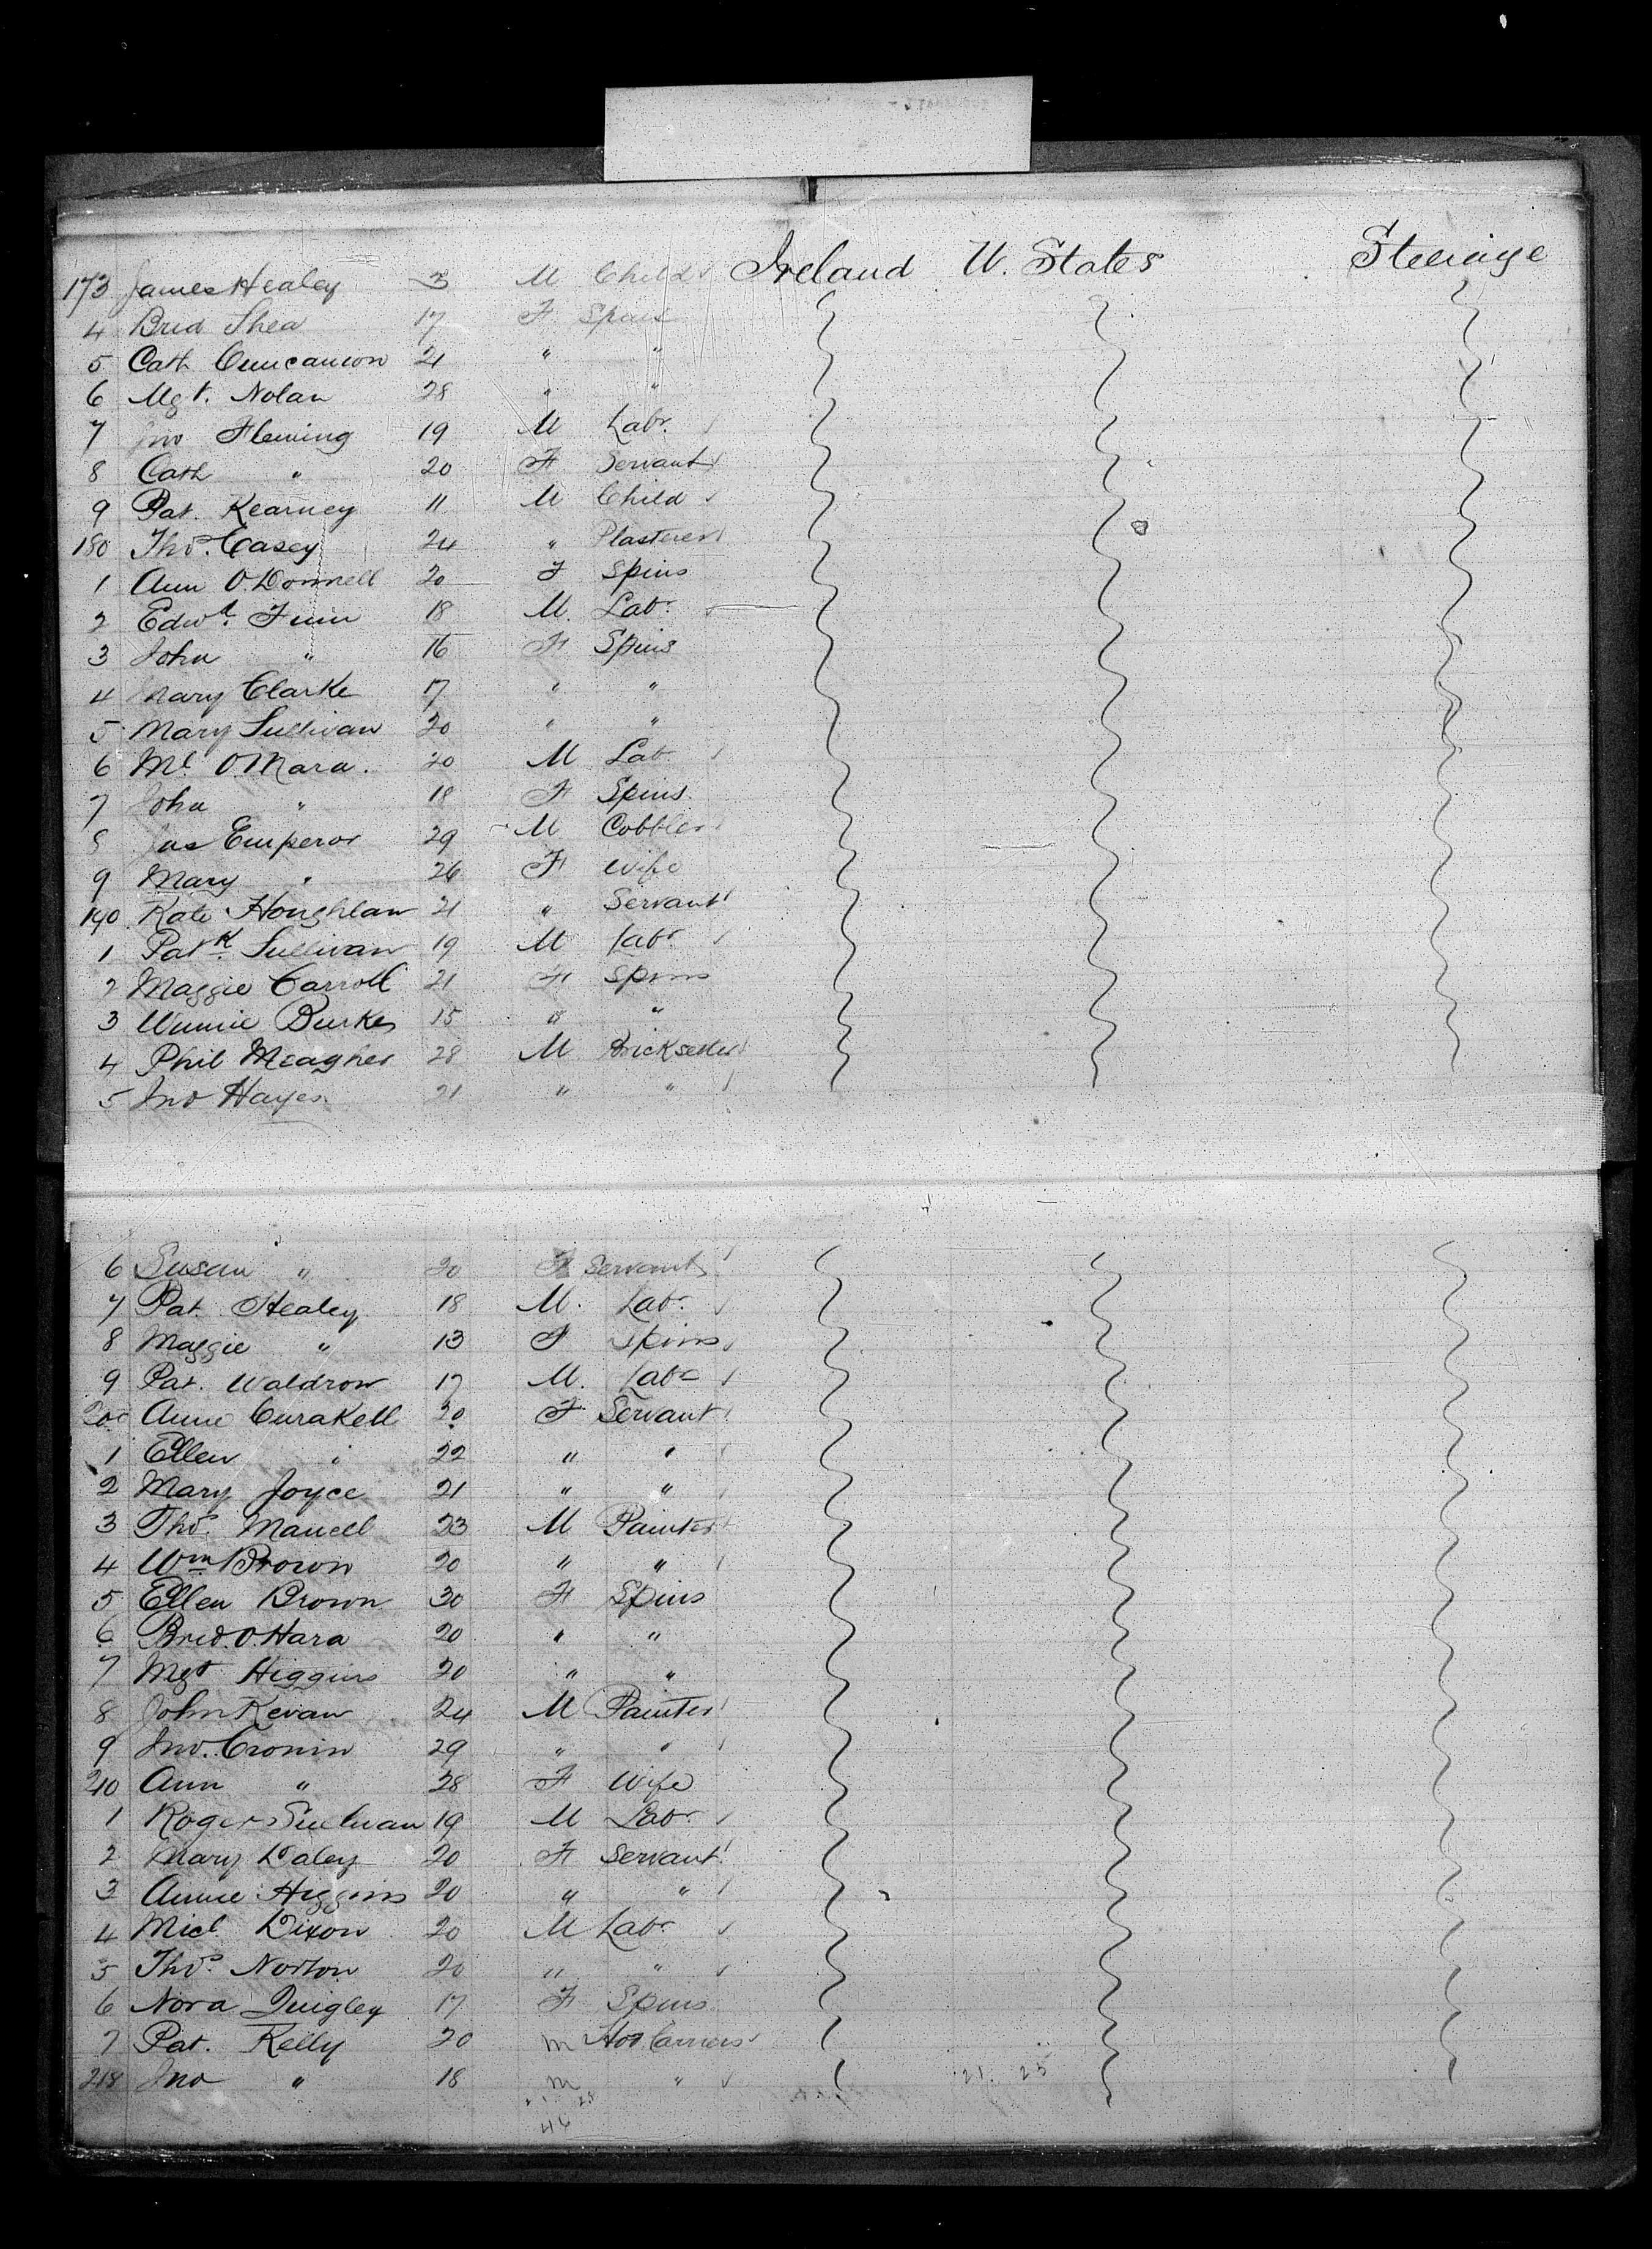 173 James Healey 3 M Child Ireland U. States Steerage
4 Brid Shea 17 F Spins
5 Cath 21 " "
6 Mgt. Nolan 28 " "
7 Jno Fleming 19 M Labr.
8 Cath " 20 F Servant
9 Pat. Kearney 11 M Child
180 Thos. Casey 24 " Plasterer
1 Ann O'Donnell 20 F Spins
2 Edwd. Finn 18 M. Labr.
3 John " 16 F Spins
4 Mary Clarke 17 " "
5 Mary Sullivan 20 " "
6 Ml. O'Mara. 20 M Lab
7 John " 18 F Spins.
8 Jas Emperor 29 M Cobbler
9 Mary " 26 F Wife
190 Kate Houghlan 21 " Servant
1 Patk. Sullivan 19 M Labr
2 Maggie Carroll 21 F Spins
3 Winnie Burkes 15 " "
4 Phil Meagher 28 M Bricksetter
5 Jno Hayes 21 " "
6 Susan " 20 F Servant
7 Pat. Healey 18 M. Labr.
8 Maggie " 13 F Spins
9 Pat. Waldron 17 M. Labr
200 Anne 20 F. Servant
1 Ellen " 22 " "
2 Mary Joyce 21 " "
3 Thos. Mansell 23 M Painter
4 Wm Brown 20 " "
5 Ellen Brown 30 F Spins
6 Brid. O'Hara 20 " "
7 Mgt Higgins 20 " "
8 John Kevan 24 M Painter
9 Jno. Cronin 29 " "
210 Ann " 28 F Wife
1 Roger Sullivan 19 M Labr.
2 Mary Daley 20 F Servant
3 Annie Higgins 20 " "
4 Micl Dixon 20 M Labr.
5 Thos. Norton 20 " "
6 Nora Quigley 17 F Spins
7 Pat. Kelly 20 M Hod Carriers
218 Jno " 18 M " 21. 25
46